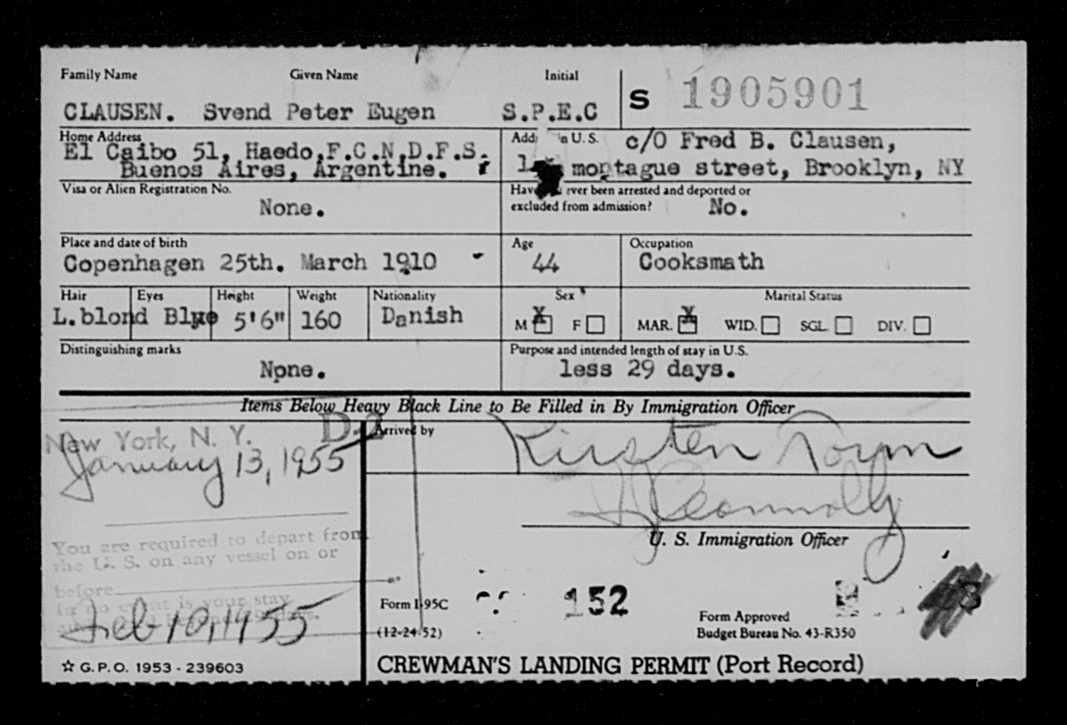 Family Name Given Name Initial
CLAUSEN. Svend Peter Eugen S.P.E.C
S 1905901
Home Address
El Caibo 51, Haedo,F.C.N.D.F.S.
Buenos Aires, Argentine.
in U.S. c/O Fred B. Clausen,
montague street, Brooklyn, NY
Visa or Alien Registration No.
None.
ever been arrested and deported or
excluded from admission? No.
Place and date of birth
Copenhagen 25th. March 1910
Age
44
Occupation
Cooksmath
Hair Eyes Height Weight Nationality
L.blond Blue 5'6" 160 Danish
Sex
M X F
Marital Status
MAR. X WID. SGL. DIV.
Distinguishing marks
None.
Purpose and intended length of stay in U.S.
less 29 days.
Items Below Heavy Black Line to Be Filled in By Immigration Officer
New York, N. Y.
January 13, 1955
D-2
Arrived by
Kirsten Torm
Connolly
U. S. Immigration Officer
You are required to depart from
the U. S. on any vessel on or
before
in no event is your stay
Feb 10, 1955
Form I-95C
(12-24-52)
152
Form Approved
Budget Bureau No. 43-R350
☆ G.P.O. 1953 - 239603
CREWMAN'S LANDING PERMIT (Port Record)